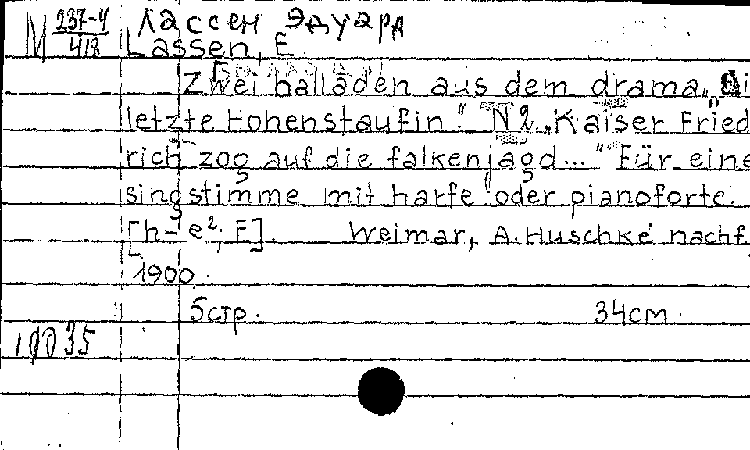 M 237-4/418 Лассен Эдуард
Lassen, E.
Zwei balladen aus dem drama „Di
letzte Hohenstaufin." N2 „Kaiser Fried
rich zog auf die falkenjagd..." Für eine
singstimme mit harfe oder pianoforte.
[h - e²; F]. Weimar, A. Huschke nachf,
1900.
5 стр. 34 cm.